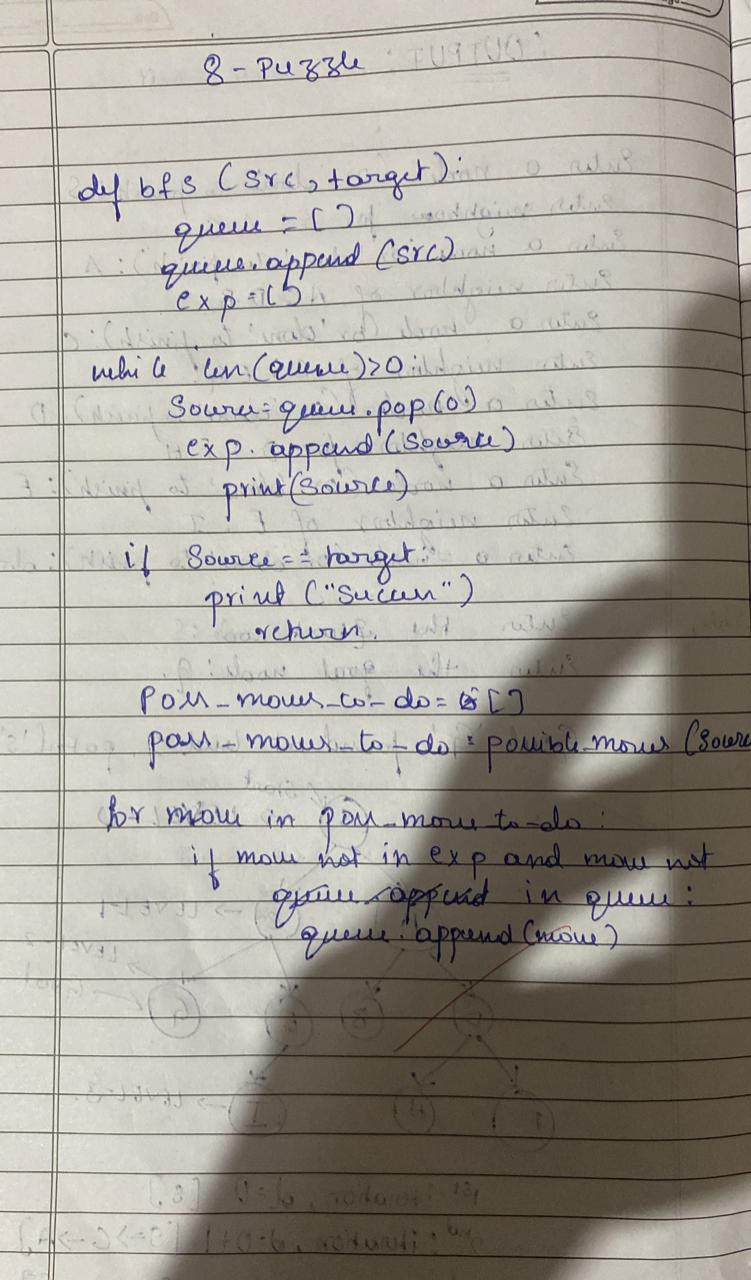 8-Puzzle
def bfs (src, target):
queue = []
queue.append (src)
exp = []
while len(queue)>0:
Source = queue.pop(0)
exp.append(Source)
print(Source)
if Source == target:
print ("Success")
return.
Poss_moves_to_do = []
poss_moves_to_do = possible_moves (Source
for move in poss_move_to-do:
if move not in exp and move not
in queue:
queue.append(move)